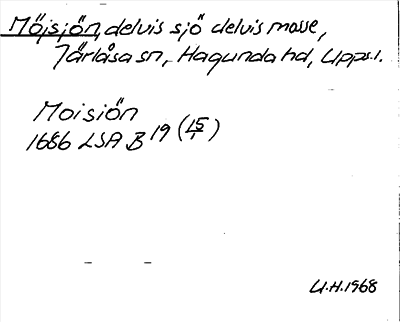 Möjsjön, delvis sjö delvis mosse,
Järlåsa sn, Hagunda hd, Upps.l.
Moisiön
1686 LSA B 19 (15/1)
U.H. 1968